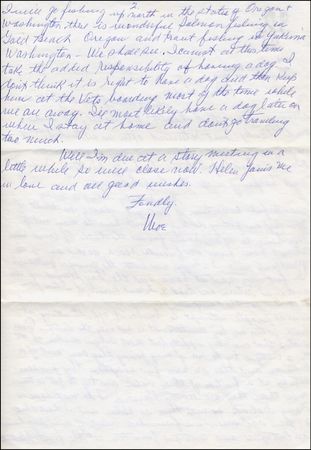 2
I will go fishing up north in the state of Oregon &
Washington. there is wonderful Salmon fishing in
Gold Beach Oregon and trout fishing in Yakima
Washington - We shall see. I cannot at this time
take the added responsibility of having a dog. I
don't think it is right to have a dog and then keep
him at the Vets boarding most of the time while
we are away. I'll most likely have a dog later on
when I stay at home and don't go traveling
too much.
Well I'm due at a story meeting in a
little while so will close now. Helen joins me
in love and all good wishes.
Fondly.
Moe